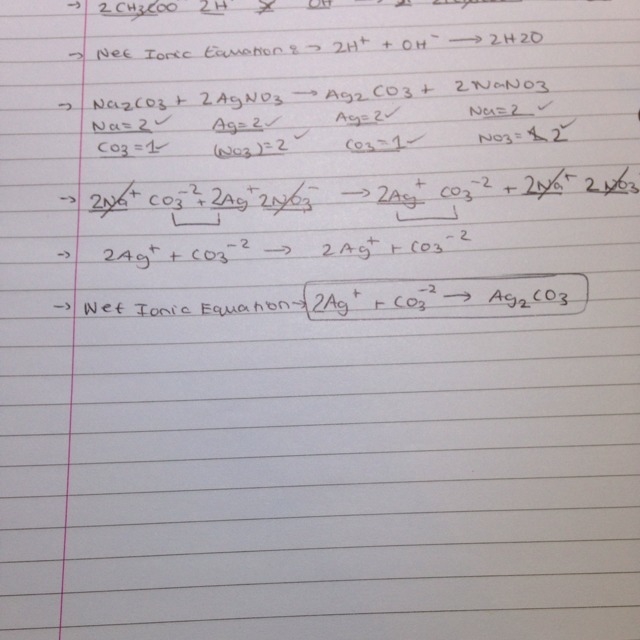 → 2CH3COO 2H OH →
→ Net Ionic Equation :→ 2H⁺ + OH⁻ → 2H2O
→ Na2CO3 + 2AgNO3 → Ag2CO3 + 2NaNO3
Na=2✓ Ag=2✓ Ag=2✓ Na=2✓
CO3=1✓ (NO3)=2✓ CO3=1✓ NO3=1 2✓
→ 2Na⁺ CO3⁻² + 2Ag⁺ 2NO3⁻ → 2Ag⁺ CO3⁻² + 2Na⁺ 2NO3
→ 2Ag⁺ + CO3⁻² → 2Ag⁺ + CO3⁻²
→ Net Ionic Equation → 2Ag⁺ + CO3⁻² → Ag2CO3